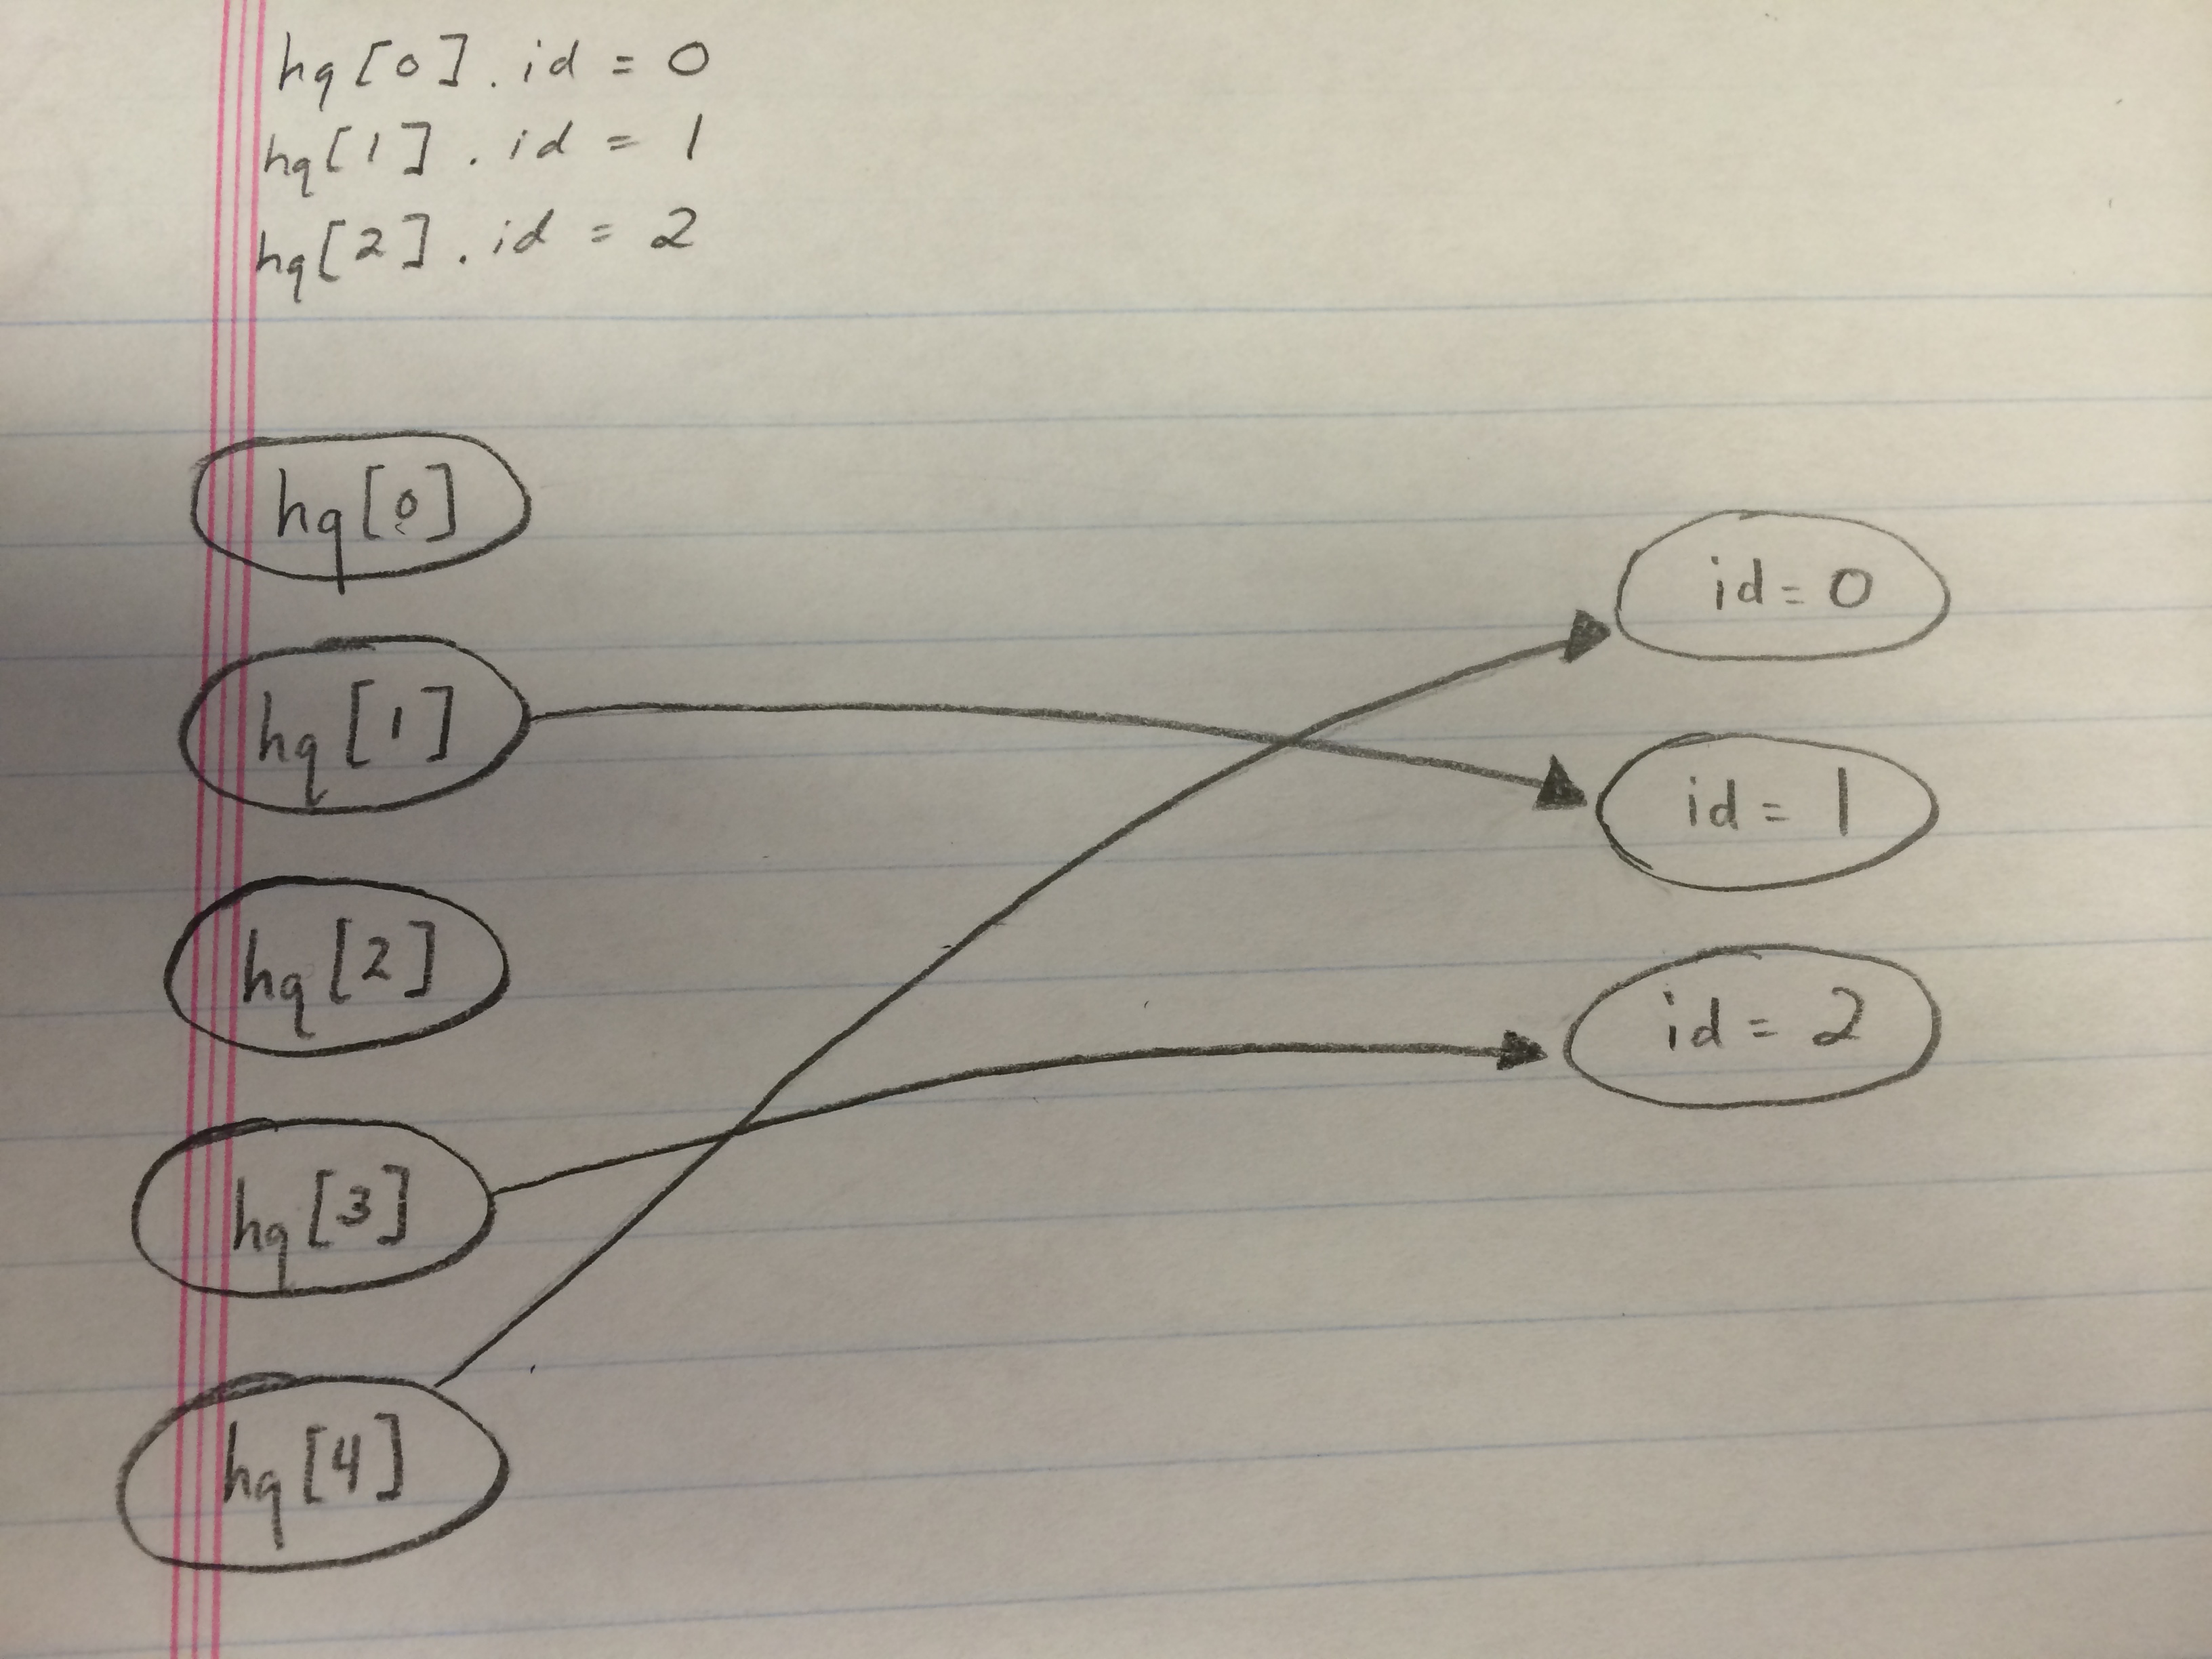 hq[0].id = 0
hq[1].id = 1
hq[2].id = 2
hq[0]
hq[1]
hq[2]
hq[3]
hq[4]
id=0
id=1
id=2